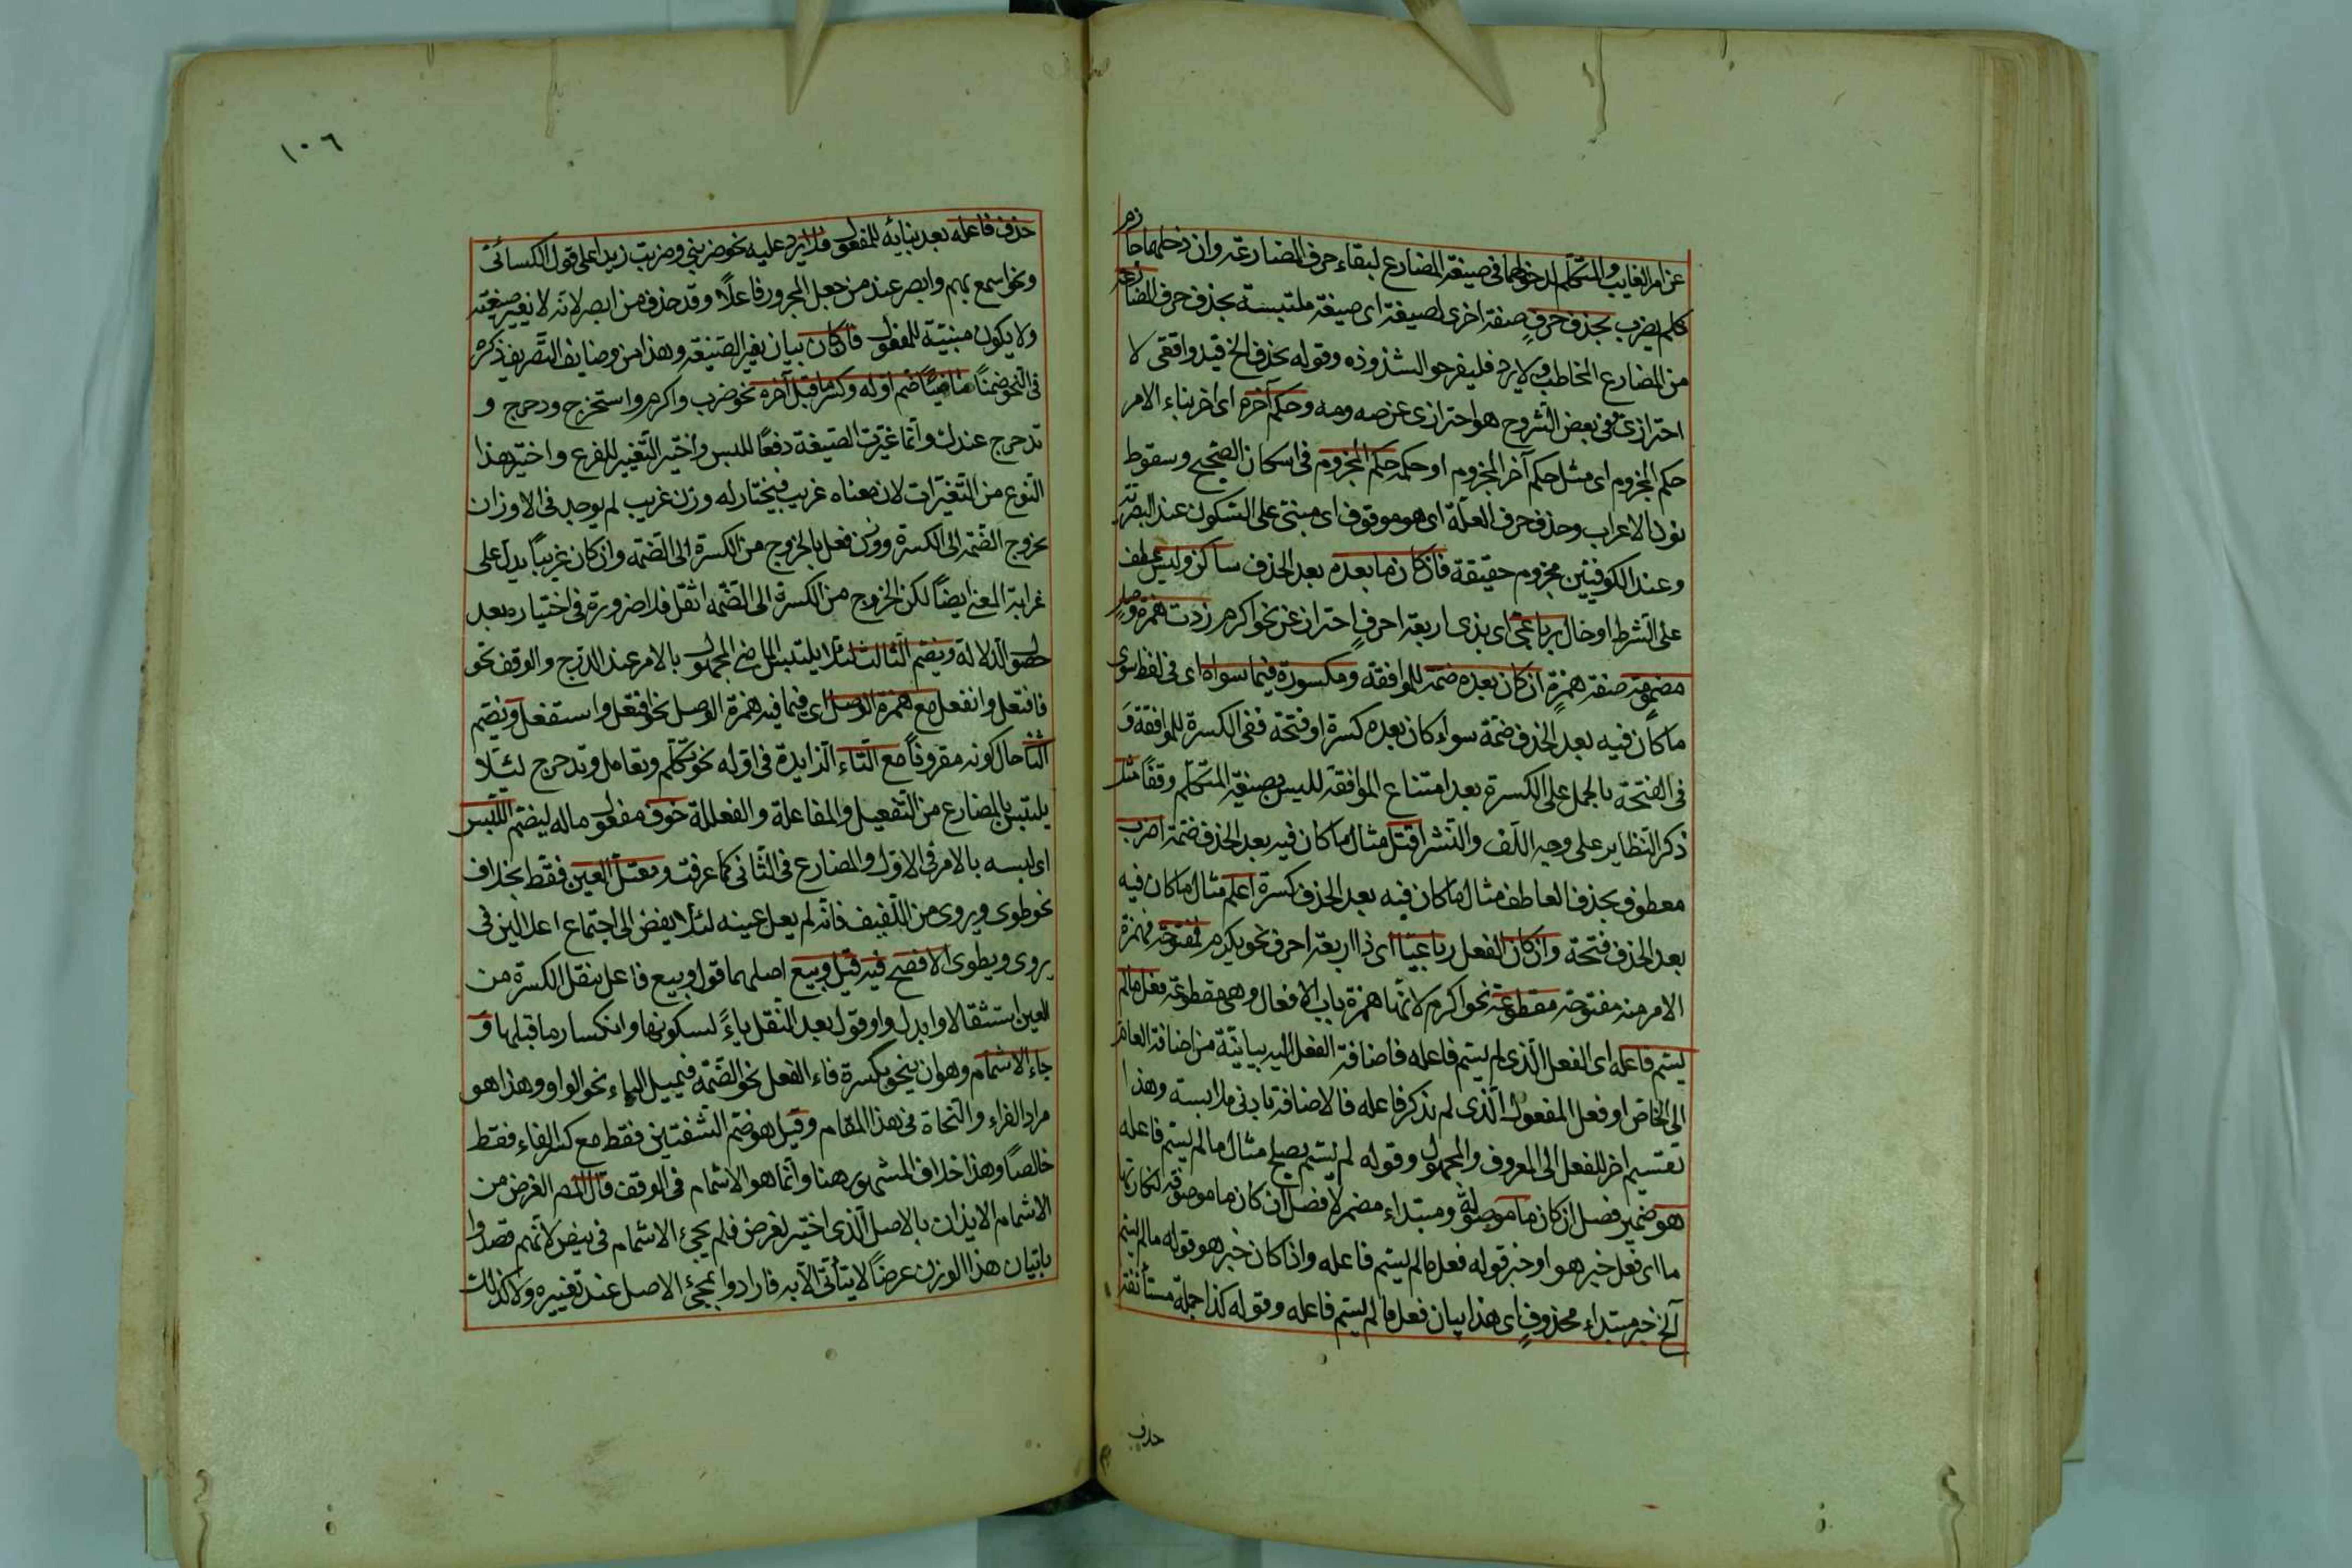 عن امر الغايب والمتكلم لدخولهما فى صيغة المضارع لبقاء حرف المضارعة وان دخلهما جازم
كلم يضرب بحذف حرف صفة اخرى لصيغة اى صيغة ملتبسة بحذف حرف المضارعة
من المضارع المخاطب ولا يرد فليفرحوا لشذوذه وقوله بحذف الخ قيد واقعى لا
احترازى ففى بعض الشروح هو احترازى عن صه ومه وحكم آخره اى اخر بناء الامر
حكم المجزوم اى مثل حكم آخر المجزوم او حكمه حكم المجزوم فى اسكان الصحيح وسقوط
نون الاعراب وحذف حرف العلة اى هو موقوف اى مبنى على السكون عند البصرية
وعند الكوفيين مجزوم حقيقة فان كان ما بعده بعد الحذف ساكن وليس عطف
على الشرط او حال برباعى اى بذى اربعة احرف احتراز عن نحو اكرم زدت همزة وصل
مضمومة صفة همزة ان كان بعده ضمة للموافقة ومكسورة فيما سواه اى فى لفظ سوى
ما كان فيه بعد الحذف ضمة سواء كان بعده كسرة او فتحة ففى الكسرة للموافقة و
فى الفتحة بالحمل على الكسرة بعد امتناع الموافقة للبس بصيغة المتكلم وقفا مثل
ذكر النظاير على وجه اللف والنشر اقتل مثال ما كان فيه بعد الحذف ضمة اضرب
معطوف بحذف العاطف مثال ما كان فيه بعد الحذف كسرة اعلم مثال ما كان فيه
بعد الحذف فتحة وان كان الفعل رباعيا اى ذا اربعة احرف نحو يكرم فمفتوحة فهمزة
الامر منه مفتوحة مقطوعة نحو اكرم لانها همزة باب الافعال وهى مقطوعة فعل ما لم
يسم فاعله اى الفعل الذى لم يسم فاعله فاضافة الفعل اليه بيانية من اضافة العام
الى الخاص او فعل المفعول الذى لم يذكر فاعله فالاضافة بادنى ملابسة وهذا
تقسيم اخر للفعل الى المعروف والمجهول وقوله لم يسم يصلح مثال ما لم يسم فاعله
هو ضمير فصل ان كان ما موصولة ومبتداء مضمر لا فصل ان كان ما موصوفة لنكارتها
ما اى فعل خبر هو او خبر قوله فعل ما لم يسم فاعله واذا كان خبر هو قوله ما لم يسم
آلخ خبر مبتداء محذوف اى هذا بيان فعل ما لم يسم فاعله وقوله كذا جملة مستأنفة
حذف
١٠٦
حذف فاعله بعد بنايه للمفعول فلا يرد عليه نحو ضربنى وضربت زيدا على قول الكسائى
ونحو اسمع بهم وابصر عند من جعل المجرور فاعلا وقد حذف من ابصر لانه لا يغير صيغته
ولا يكون مبنية للمفعول فان كان بيان تغير الصيغة وهذا من وضايف التصريف ذكره
فى النحو ضمنا ماضيا ضم اوله وكسر ما قبل آخره نحو ضرب واكرم واستخرج ودحرج و
تدحرج عندك وانما غيرت الصيغة دفعا للبس واختير التغيير للفرع واختير هذا
النوع من التغيرات لان معناه غريب فيختار له وزن غريب لم يوجد فى الاوزان
بخروج الضمة الى الكسرة ووزن فعل بالخروج من الكسرة الى الضمة وان كان غريبا يدل على
غرابة المعنى ايضا لكن الخروج من الكسرة الى الضمة اثقل فلا ضرورة فى اختياره بعد
حصول الدلالة ويضم الثالث لئلا يلتبس الماضى المجهول بالامر عند الدرج والوقف نحو
فافتعل وانفعل مع همزة الوصل اى فيما فيه همزة الوصل نحو افتعل واستفعل ويضم
الثانى حال كونه مقرونا مع التاء الزايدة فى اوله نحو تكلم وتعامل وتدحرج لئلا
يلتبس بالمضارع من التفعيل والمفاعلة والفعللة خوف مفعول ماله ليضم اللبس
اى لبسه بالامر فى الاول والمضارع فى الثانى كما عرفت ومعتل العين فقط بخلاف
نحو طوى ويروى من اللفيف فانه لم يعل عينه لئلا يفض الى اجتماع اعلالين فى
يروى ويطوى الافصح فيه قيل وبيع اصلهما قول وبيع فاعل بنقل الكسرة من
العين استثقالا وابدل واو قول بعد النقل ياء لسكونها وانكسار ما قبلها و
جاء الاشمام وهو ان ينحو بكسرة فاء الفعل نحو الضمة فيميل الياء نحو الواو وهذا هو
مراد الفراء والنحاة فى هذا المقام وقيل هو ضم الشفتين فقط مع كسر الفاء فقط
خالصا وهذا خلاف المشهور هنا وانما هو الاشمام فى الوقف قال المص الغرض من
الاشمام الايذان بالاصل الذى اختير لغرض فلم يجئ الاشمام فى بيض لانهم قصدوا
باتيان هذا الوزن عرضا لا يتأتى الا به فارادوا بمجئ الاصل عند تغييره ولا كذلك